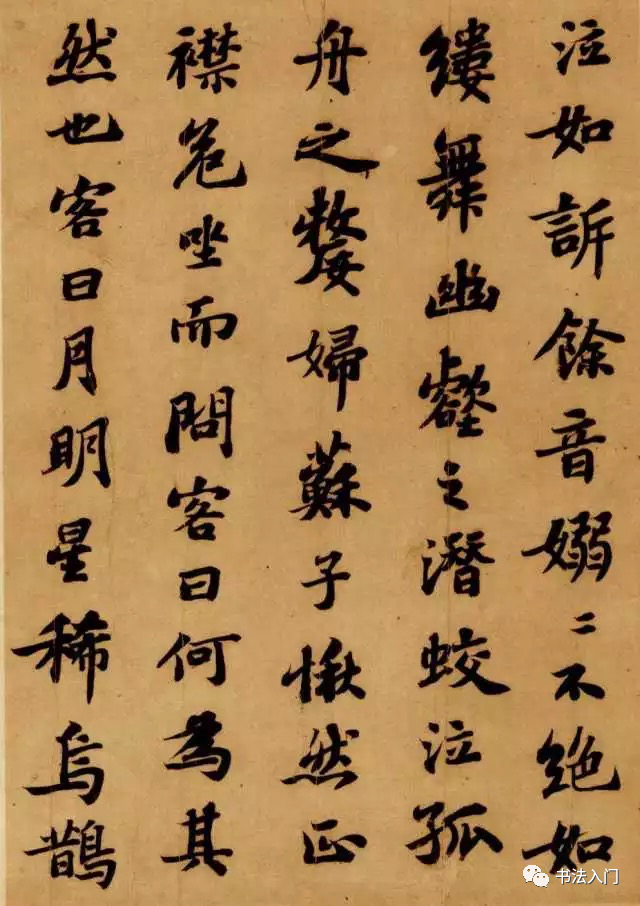 泣如訴餘音嫋〻不絶如
縷舞幽壑之潛蛟泣孤
舟之嫠婦蘇子愀然正
襟危坐而問客曰何為其
然也客曰月明星稀烏鵲
书法入门